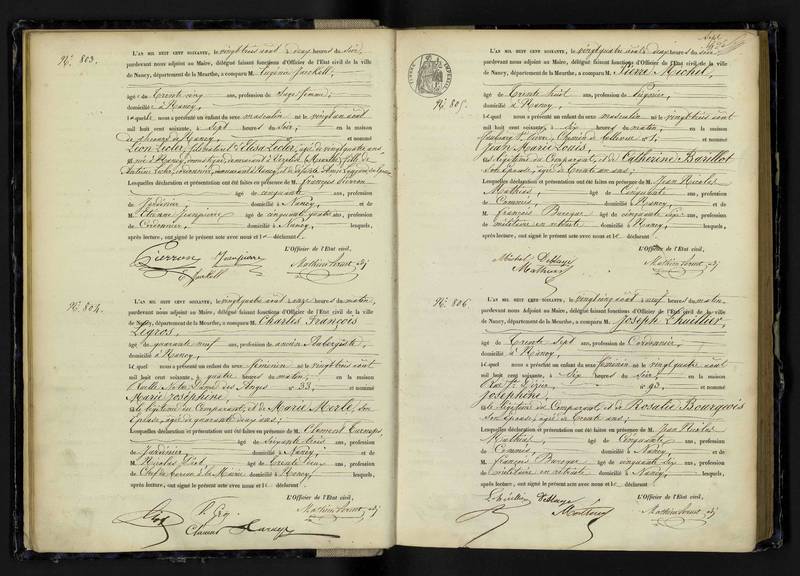 N° 803.
L'AN MIL HUIT CENT SOIXANTE, le vingttrois août à deux heures du soir,
pardevant nous adjoint au Maire, délégué faisant fonctions d'Officier de l'Etat civil de la ville
de Nancy, département de la Meurthe, a comparu M.
âgé e de Trente cinq ans, profession de Sage femme,
domicilié e à Nancy,
laquelle nous a présenté un enfant du sexe masculin né le vingt un août
mil huit cent soixante, à sept heures du soir, en la maison
de Nancy, et nommé
Léon fils Elisa âgée de vingtquatre ans
née à demeurant à fille de
demeurant à Nancy, et de
Lesquelles déclaration et présentation ont été faites en présence de M. François Pierron
âgé de cinquante ans, profession
de Jardinier, domicilié à Nancy, et de
M. Etienne âgé de cinquante quatre ans, profession
de Cordonnier, domicilié à Nancy, lesquels,
après lecture, ont signé le présent acte avec nous et la déclarant
L'Officier de l'Etat civil,
Pierron
N° 804.
L'AN MIL HUIT CENT SOIXANTE, le vingtquatre août à onze heures du matin,
pardevant nous adjoint au Maire, délégué faisant fonctions d'Officier de l'Etat civil de la ville
de Nancy, département de la Meurthe, a comparu M. Charles François
Legros,
âgé de quarante neuf ans, profession de ancien Aubergiste,
domicilié à Nancy,
lequel nous a présenté un enfant du sexe féminin né le vingttrois août
mil huit cent soixante, à quatre heures du matin, en la maison
Ruelle Notre Dame des Anges n° 33, et nommé
Marie Joséphine,
légitime du Comparant, et de Marie Merlé, son
épouse, âgée de quarante deux ans;
Lesquelles déclaration et présentation ont été faites en présence de M. Clément
âgé de Soixante trois ans, profession
de Jardinier, domicilié à Nancy, et de
M. Nicolas âgé de Trente deux ans, profession
de à la Mairie domicilié à Nancy, lesquels,
après lecture, ont signé le présent acte avec nous et le déclarant
L'Officier de l'Etat civil,
Clément
N° 805.
L'AN MIL HUIT CENT SOIXANTE, le vingtquatre août à deux heures du soir,
pardevant nous adjoint au Maire, délégué faisant fonctions d'Officier de l'Etat civil de la ville
de Nancy, département de la Meurthe, a comparu M. Pierre Michel,
âgé de Trente huit ans, profession de Vigneron,
domicilié à Nancy,
lequel nous a présenté un enfant du sexe masculin né le vingttrois août
mil huit cent soixante, à six heures du matin, en la maison
faubourg St Pierre, Chemin de et nommé
Jean Marie Louis,
fils légitime du Comparant, et de Catherine Barillot
son épouse, âgée de Trente un ans;
Lesquelles déclaration et présentation ont été faites en présence de M. Jean Nicolas
Mathias, âgé de Cinquante ans, profession
de Commis, domicilié à Nancy, et de
M. François âgé de cinquante six ans, profession
de militaire en retraite domicilié à Nancy, lesquels,
après lecture, ont signé le présent acte avec nous et le déclarant
L'Officier de l'Etat civil,
Michel
Mathias
N° 806.
L'AN MIL HUIT CENT SOIXANTE, le vingtcinq août à neuf heures du matin,
pardevant nous adjoint au Maire, délégué faisant fonctions d'Officier de l'Etat civil de la ville
de Nancy, département de la Meurthe, a comparu M. Joseph Lhuillier,
âgé de Trente sept ans, profession de Cordonnier,
domicilié à Nancy,
lequel nous a présenté un enfant du sexe féminin né le vingtquatre août
mil huit cent soixante, à six heures du soir, en la maison
Rue St Dizier, n° 93, et nommé
Joséphine,
fille légitime du Comparant, et de Rosalie Bourgeois
son épouse, âgée de Trente ans;
Lesquelles déclaration et présentation ont été faites en présence de M. Jean Nicolas
Mathias, âgé de Cinquante ans, profession
de Commis, domicilié à Nancy, et de
M. François âgé de cinquante six ans, profession
de militaire en retraite domicilié à Nancy, lesquels,
après lecture, ont signé le présent acte avec nous et le déclarant
L'Officier de l'Etat civil,
Lhuillier